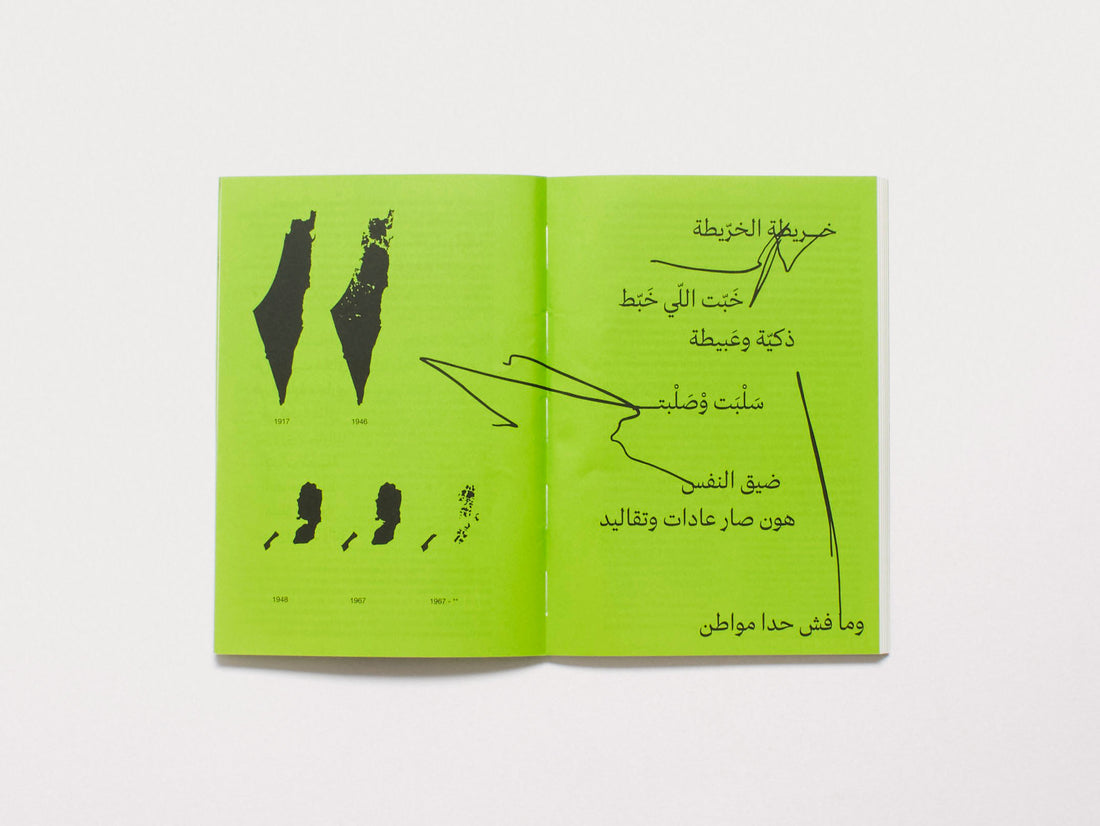 1917 1946
1948 1967 1967 - **
خريطة الخرّيطة
خَبّت اللّي خَبّط
ذكيّة وعَبيطة
سَلْبَت وْصَلْبت
ضيق النفس
هون صار عادات وتقاليد
وما فش حدا مواطن